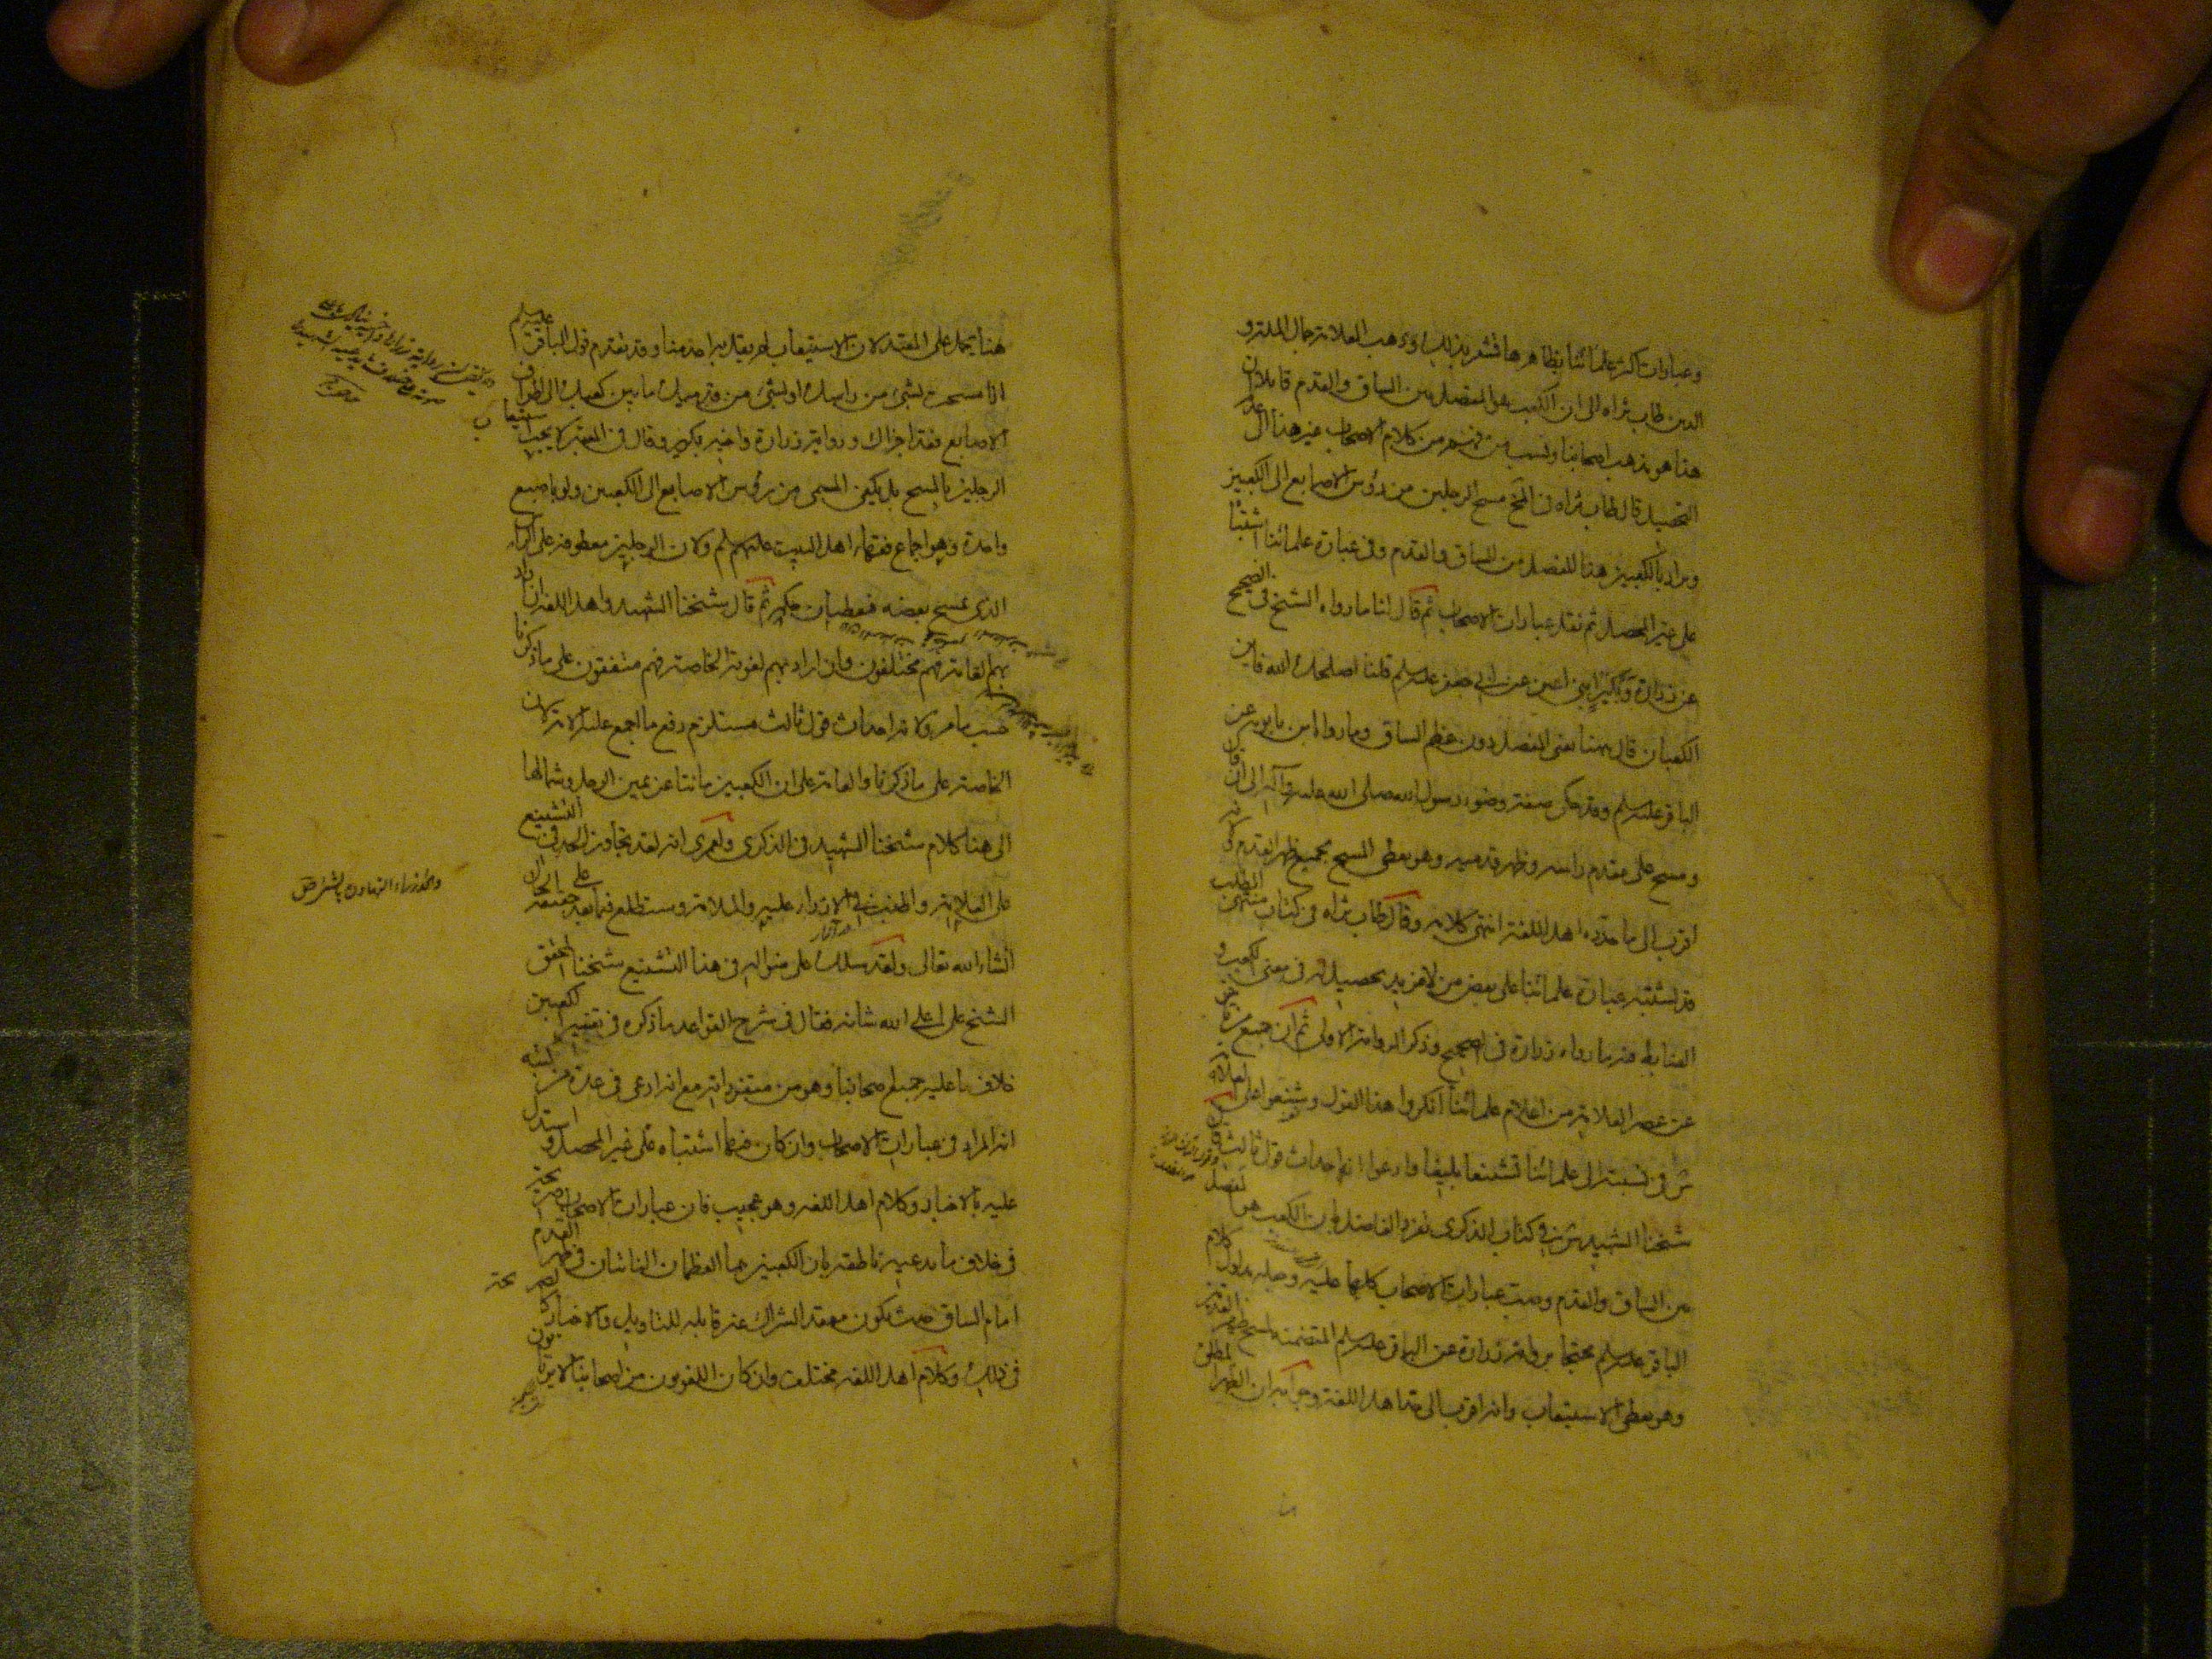 وعبارات اكثر علمائنا بظاهرها تشعر بذلك وذهب العلامة جمال الملة و
الدين طاب ثراه الى ان الكعب هو المفصل بين الساق والقدم قايلا ان
هذا هو مذهب اصحابنا ونسب من فهم من كلام الاصحاب غير هذا الى عدم
التحصيل قال طاب ثراه في المخ مسح الرجلين من رؤس الاصابع الى الكعبين
ويراد بالكعبين هنا المفصل بين الساق والقدم وفي عبارة علمائنا اشتباه
على غير المحصل ثم نقل عبارات الاصحاب ثم قال لنا ما رواه الشيخ في الصحيح
عن زرارة وبكير ابني اعين عن ابي جعفر عليه سلم قلنا اصلحك الله فاين
الكعبان قال ههنا يعني المفصل دون عظم الساق وما رواه ابن بابويه عن
الباقر عليه سلم وقد حكى صفة وضوء رسول الله صلى الله عليه وآله الى ان قال
ومسح على مقدم راسه وظهر قدميه وهو يعطي المسح بجميع ظهر القدم ولانه
اقرب الى ما حدده اهل اللغة انتهى كلامه وقال طاب ثراه في كتاب منتهى المطلب
قد اشتبه عبارة علمائنا على بعض من لا مزيد تحصيل له في معنى الكعب و
الضابط فيه ما رواه زرارة في الصحيح وذكر الرواية الاولى ثم ان جميع من تاخر
عن عصر العلامة من اعلام علمائنا انكروا هذا القول وشنعوا على العلامة
في نسبته الى علمائنا تشنيعا بليغا وادعوا انه احداث قول ثالث قال
شيخنا الشهيد في كتاب الذكرى تفرد الفاضل بان الكعب هو المفصل
بين الساق والقدم وصب عبارات الاصحاب كلها عليه وجعله مدلول كلام
الباقر عليه سلم محتجا برواية زرارة عن الباقر عليه سلم المتضمنة لمسح ظهر القدمين
وهو يعطي الاستيعاب وانه اقرب الى حد اهل اللغة وجوابه ان الظهر المطلق
هنا يحمل على المقيد لان الاستيعاب لم يقل به احد منا وقد تقدم قول الباقر عليه سلم
اذا مسحت بشئ من راسك او بشئ من قدميك ما بين كعبيك الى اطراف
الاصابع فقد اجزاك ورواية زرارة واخيه بكير وقال في المعتبر لا يجب استيعاب
الرجلين بالمسح بل يكفي المسمى من رؤس الاصابع الى الكعبين ولو باصبع
واحدة وهو اجماع فقهاء اهل البيت عليهم سلم ولان الرجلين معطوفة على الراس
الذي يمسح بعضه فيعطيان حكمه ثم قال شيخنا الشهيد واهل اللغة ان اراد
بهم العامة فهم مختلفون وان اراد بهم لغوية الخاصة فهم متفقون على ما ذكرنا
حسب ما مر ولانه احداث قول ثالث مستلزم رفع ما اجمع عليه الامة لان
الخاصة على ما ذكرنا والعامة على ان الكعبين ما نتا عن يمين الرجل وشمالها
الى هنا كلام شيخنا الشهيد في الذكرى ولعمري انه لقد تجاوز الحد في التشنيع
على العلامة واطنب في الازراء عليه والملامة وستطلع فيما بعد على حقيقة الحال
انشاء الله تعالى ولقد سلك على منواله في هذا التشنيع شيخنا المحقق
الشيخ علي اعلى الله شانه فقال في شرح القواعد ما ذكره في تفسير الكعبين
خلاف ما عليه جميع اصحابنا وهو من متفرداته مع انه ادعى في عدة من كتبه
انه المراد في عبارات الاصحاب وان كان فيها اشتباه على غير المحصل واستدل
عليه بالاخبار وكلام اهل اللغة وهو عجيب فان عبارات الاصحاب صريحة
في خلاف ما يدعيه ناطقة بان الكعبين هما العظمان الناتيان في ظهر القدم
امام الساق حيث يكون معقد الشراك غير قابلة للتاويل والاخبار كالصريحة
في ذلك وكلام اهل اللغة مختلف وان كان اللغويون من اصحابنا لا يرتابون